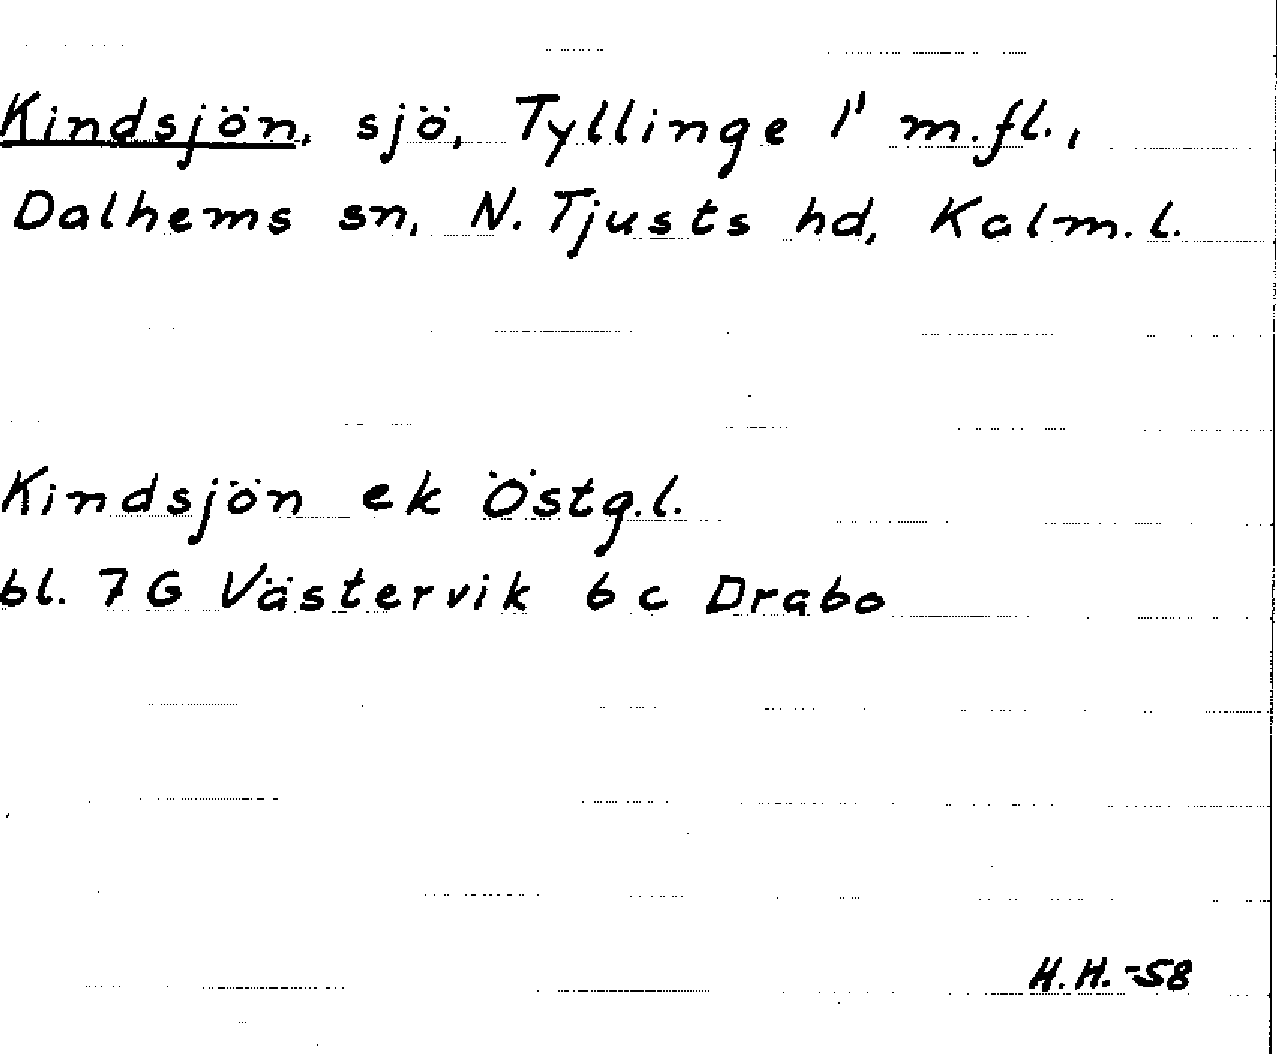 Kindsjön, sjö, Tyllinge 1' m.fl.,
Dalhems sn, N. Tjusts hd, Kalm.l.
Kindsjön ek Östg.l.
bl. 7G Västervik 6c Drabo
H.H.-58